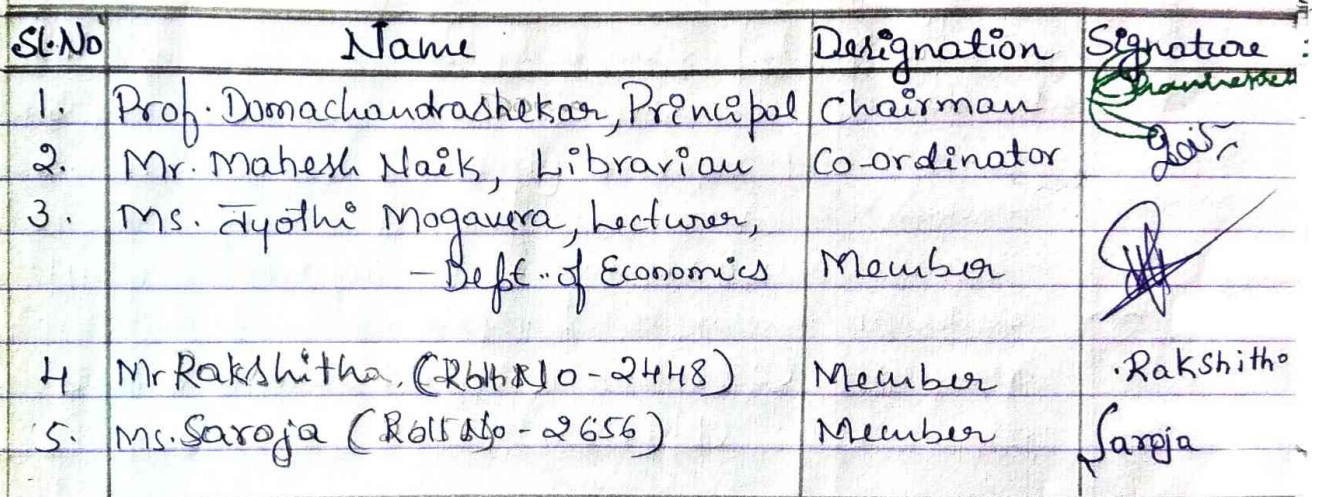 Sl.No Name Designation Signature
1. Prof. Domachandrashekar, Principal Chairman
2. Mr. Mahesh Naik, Librarian Co-ordinator
3. Ms. Jyothi Mogavera, Lecturer,
- Dept. of Economics Member
4 Mr Rakshitha. (Roll No - 2448) Member Rakshitha
5. Ms. Saroja (Roll No - 2656) Member Saroja